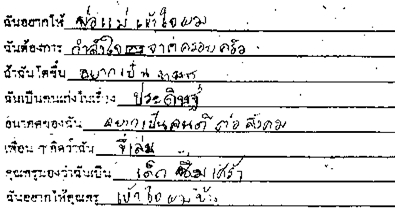 ฉันอยากให้ พ่อแม่ เข้าใจผม
ฉันต้องการ กำลังใจ จากครอบครัว
ถ้าฉันโตขึ้น อยากเป็น
ฉันเป็นคนเก่งในเรื่อง ประดิษฐ์
อนาคตของฉัน อยากเป็นคนดีต่อสังคม
เพื่อน ๆ คิดว่าฉัน ขี้เล่น
คุณครูมองว่าฉันเป็น เด็ก ซึมเศร้า
ฉันอยากให้คุณครู เข้าใจผมบ้าง